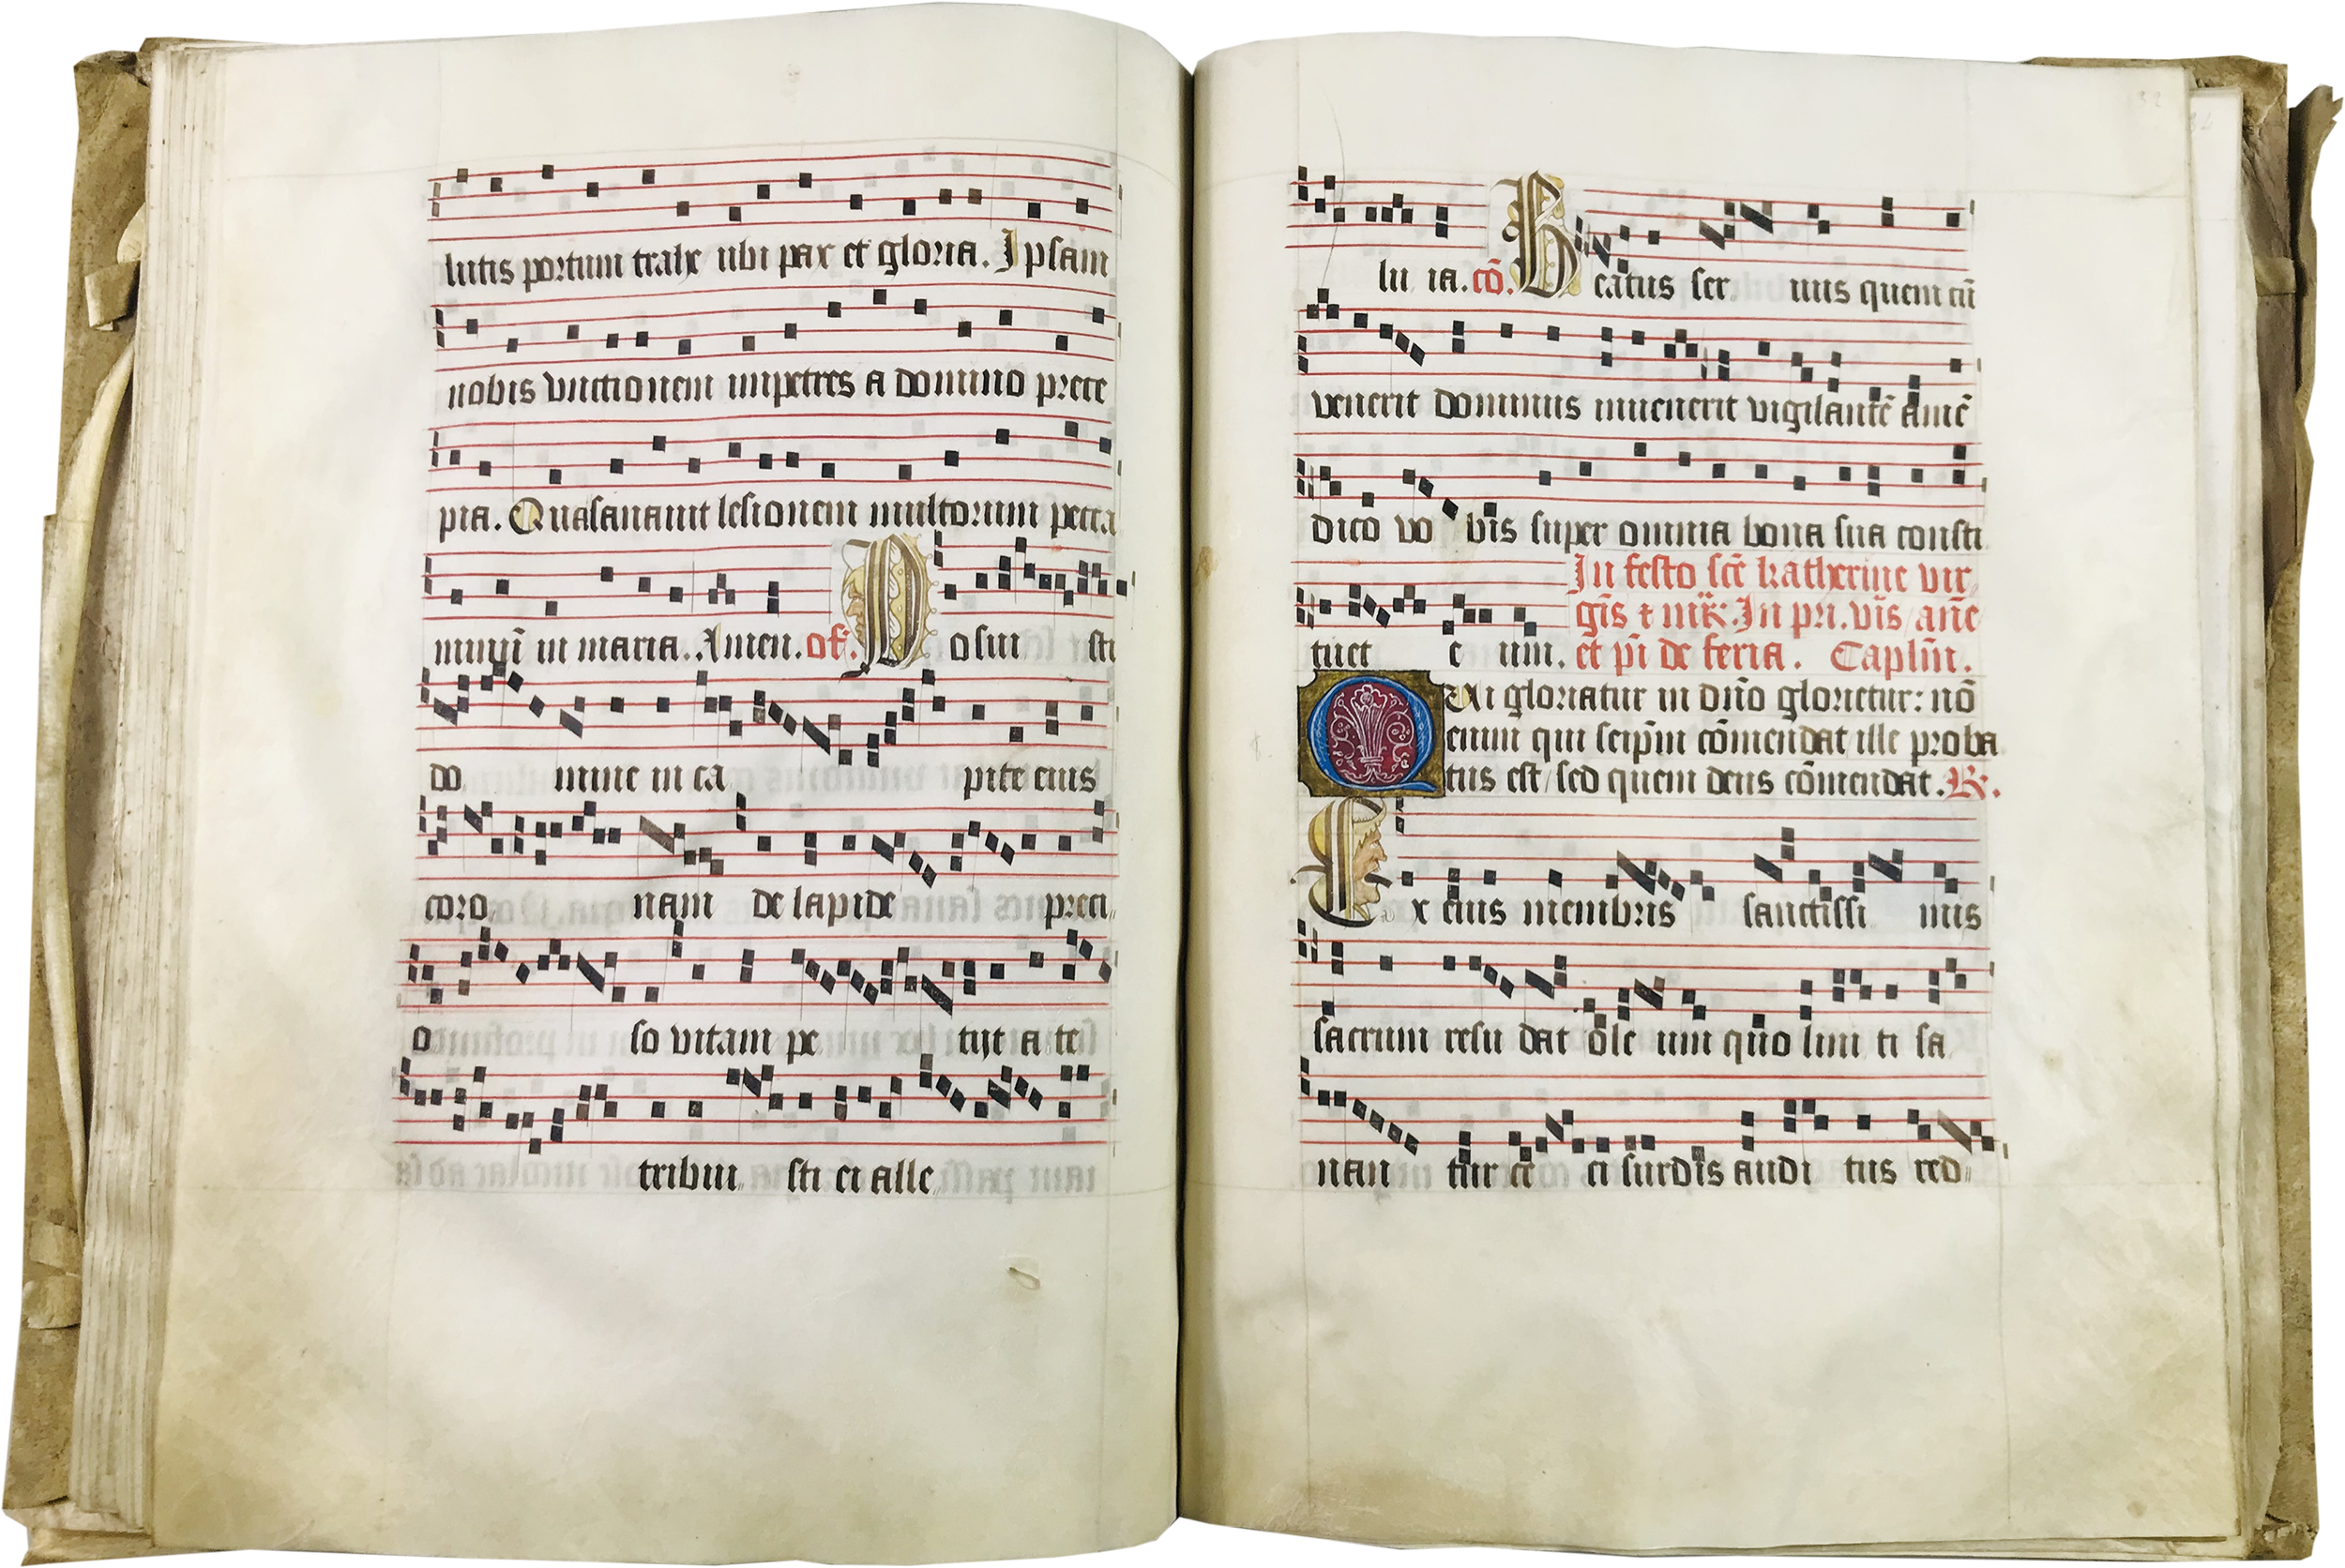 lutis portum trahe ubi pax et gloria. Ipsam
nobis vnctionem impetres a domino prece
pia. Qua sanauit lesionem multorum pecca
minū in maria. Amen. of. Posui sti
do mine in ca pite eius
coro nam de lapide preci
o so vitam pe tijt a te
tribui sti ei alle
32
lu ia. cō. Beatus ser uus quem cū
venerit dominus inuenerit vigilantē amē
dico vo bis super omnia bona sua consti
In festo scē katherine vir
gīs ⁊ mr̄. In pri. vīs anē
tuet e um. et pī de feria. Caplm̄.
Qui gloriatur in dn̄o glorietur: nō
enim qui seip̄m cōmendat ille proba
tus est / sed quem deus cōmendat. R.
Ex eius membris sanctissi mis
sacrum resu dat ole um quo lini ti sa
nan tur ce ci surdis audi tus red